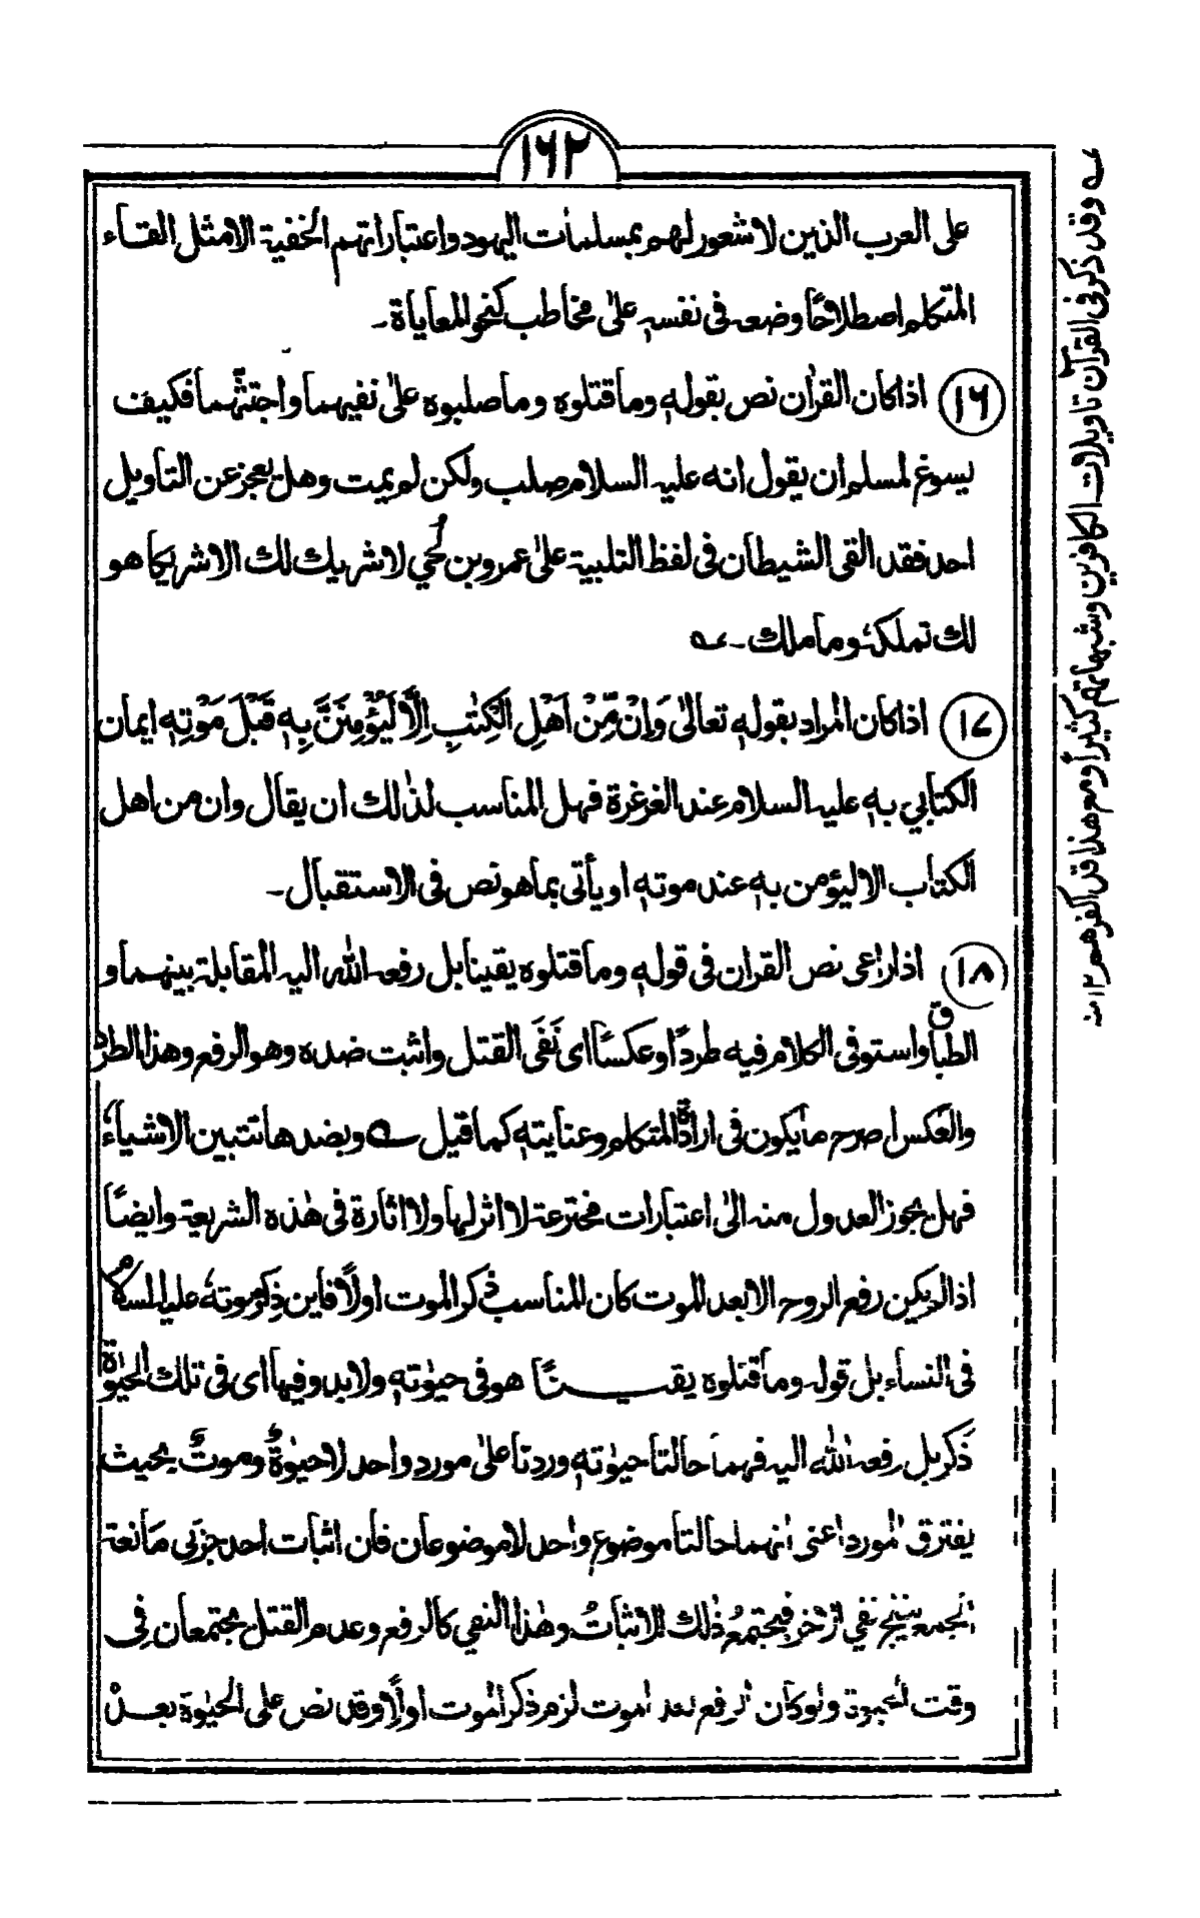 ١٦٢
على العرب الذين لا شعور لهم بمسلمات اليهود واعتباراتهم الخفية الا مثل القاء
المتكلم اصطلاحًا وضعه فى نفسهٖ علىٰ مخاطب كنحو المعاياة۔
١٦ اذا كان القراٰن نص بقولهٖ وما قتلوه وما صلبوه علىٰ نفيهما واجتثّهما فكيف
يسوغ لمسلم ان يقول انه عليه السلام صلب ولكن لم يمت وهل يعجز عن التاويل
احد فقد القى الشيطان فى لفظ التلبية علىٰ عمرو بن لُحي لا شريك لك الا شريكا هو
لك تملكهٗ وما ملك۔ ؎
١٧ اذا كان المراد بقولهٖ تعالىٰ وَاِنْ مِّنْ اَهْلِ الْكِتٰبِ اِلَّا لَيُؤْمِنَنَّ بِهٖ قَبْلَ مَوْتِهٖ ايمان
الكتابي بهٖ عليه السلام عند الغرغرة فهل المناسب لذٰلك ان يقال وان من اهل
الكتاب الا ليؤمن بهٖ عند موتهٖ او يأتى بما هو نص فى الاستقبال۔
١٨ اذا راعى نص القران فى قولهٖ وما قتلوه يقينا بل رفعه الله اليه المقابلة بينهما و
الطباق واستوفى الكلام فيه طردًا وعكسًا اى نَفَى القتل واثبت ضده وهو الرفع وهذا الطرد
والعكس اصرح ما يكون فى ارادة المتكلم وعنايتهٖ كما قيل ؎ وبضدها تتبين الاشياءٗ
فهل يجوز العدول منه الىٰ اعتبارات مخترعة لا اثر لها ولا اثارة فى هٰذه الشريعة وايضًا
اذا لم يكن رفع الروح الا بعد الموت كان المناسب ذكر الموت اولًا فأين ذِكر موتهٖ عليه السلام
فى النساء بل قوله وما قتلوه يقينًا هو فى حيوٰتهٖ ولا بد وفيها اى فى تلك الحيوٰة
ذكر بل رفعه الله اليه فهما حالتا حيوٰتهٖ وردتا علىٰ مورد واحد لا حيوٰةٌ وموتٌ بحيث
يفترق المورد اعنى انهما حالتا موضوع واحد لا موضوعان فان اثبات احد جزئى مانعة
الجمع ينتج نفي الاخر فيجتمعُ ذٰلك الاثباتُ وهٰذا النفي كالرفع وعدم القتل يجتمعان فى
وقت الحيوة ولو كان الرفع بعد الموت لزم ذكر الموت اولًا وقد نص على الحيوٰة بعدْ
؎ وقد ذكر فى القرآن تاويلات الكافرين وشبهاتهم كثيرًا ومع هذا قد اكفرهم ١٢ منه